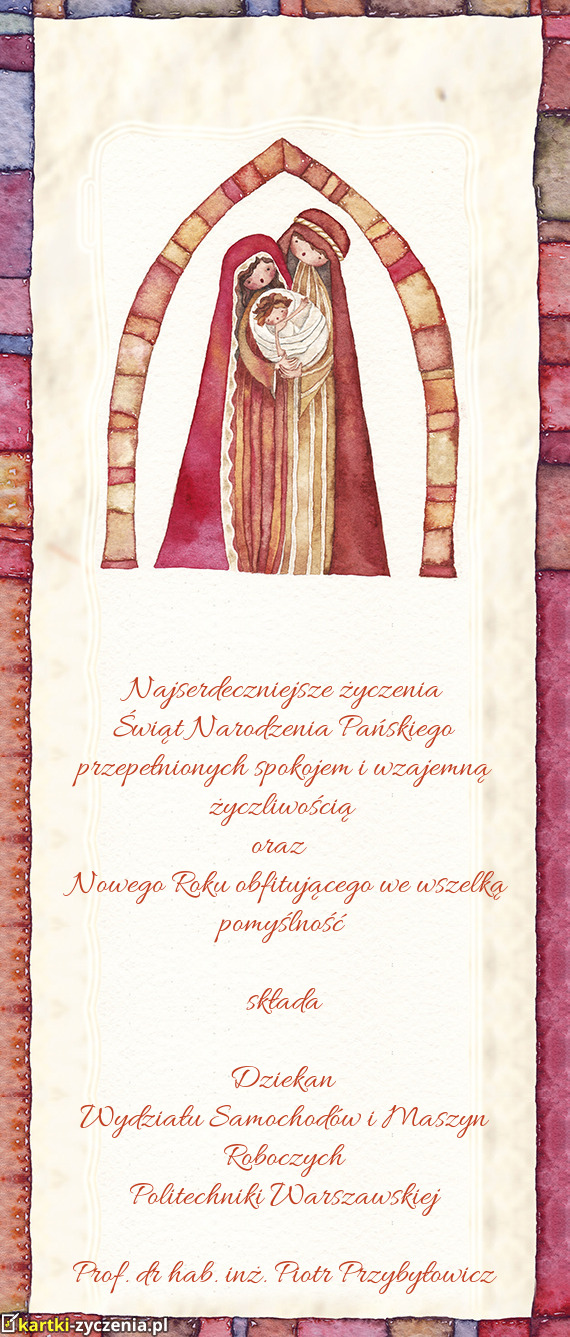 Najserdeczniejsze życzenia
Świąt Narodzenia Pańskiego
przepełnionych spokojem i wzajemną
życzliwością
oraz
Nowego Roku obfitującego we wszelką
pomyślność
składa
Dziekan
Wydziału Samochodów i Maszyn
Roboczych
Politechniki Warszawskiej
Prof. dr hab. inż. Piotr Przybyłowicz
kartki-zyczenia.pl